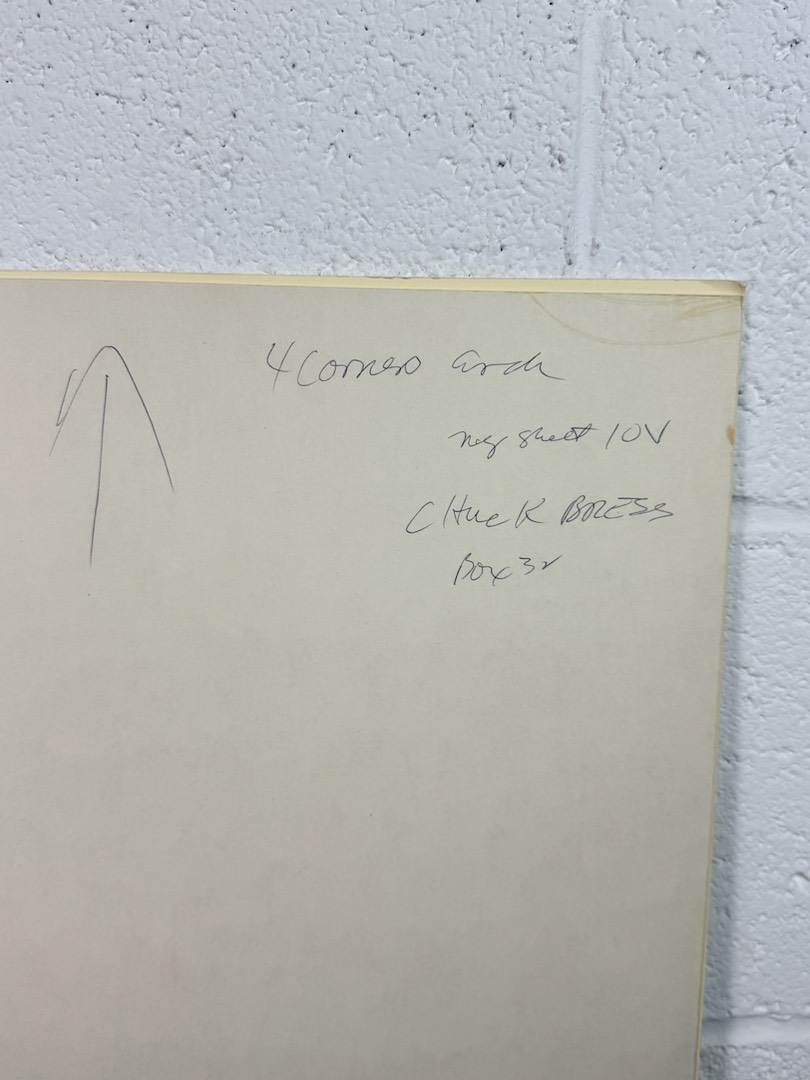 4 Corners arch
neg sheet 10V
CHucK BRESS
Box 32